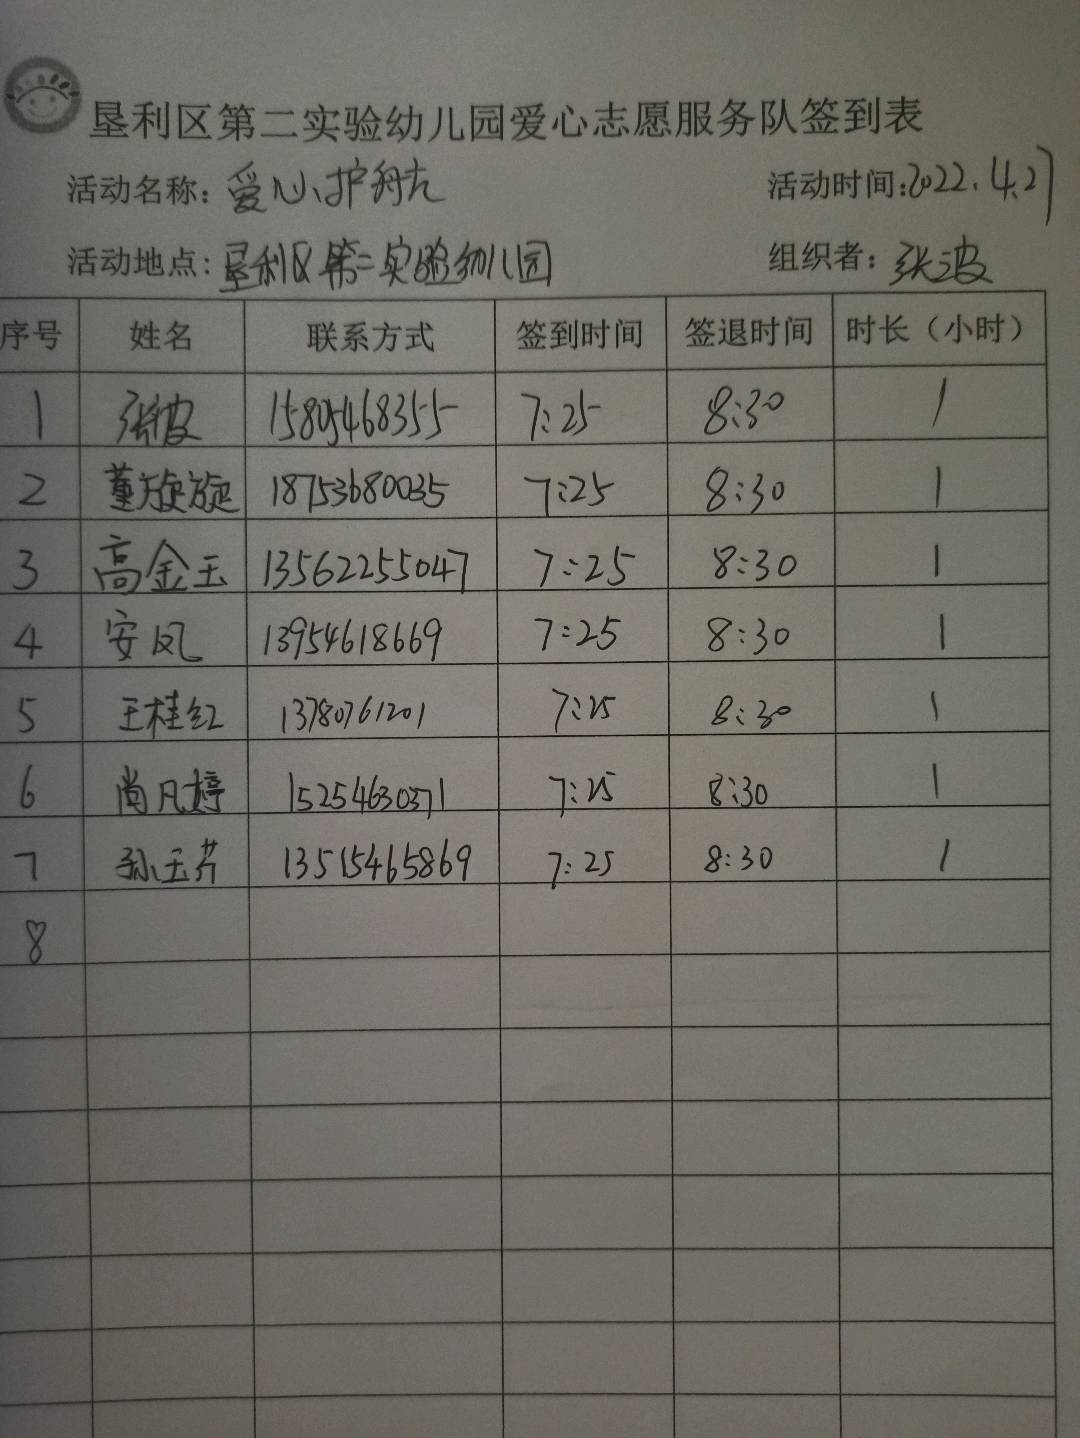 垦利区第二实验幼儿园爱心志愿服务队签到表
活动名称：爱心护航 活动时间：2022.4.27
活动地点：垦利区第二实验幼儿园 组织者：张波
序号 姓名 联系方式 签到时间 签退时间 时长（小时）
1 张波 15805468355 7:25 8:30 1
2 董旋旋 18753680035 7:25 8:30 1
3 高金玉 13562255047 7:25 8:30 1
4 安凤 13954618669 7:25 8:30 1
5 王桂红 13780761201 7:25 8:30 1
6 尚凡婷 15254630371 7:25 8:30 1
7 孙玉芹 13515465869 7:25 8:30 1
8